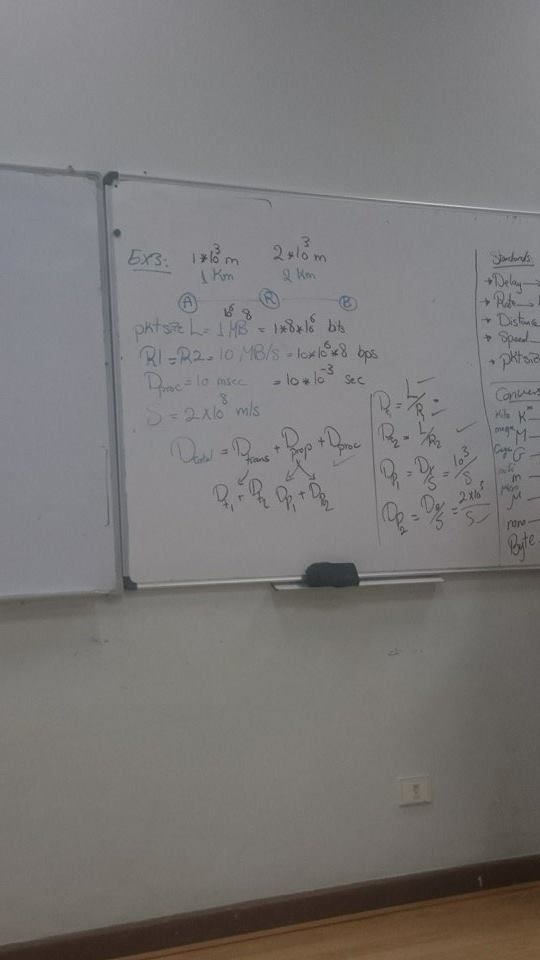 Ex3: 1*10³m 2*10³m
1 Km 2 Km
A R B
10⁶ 8
pktsize L = 1 MB = 1*8*10⁶ bits
R1 = R2 = 10 MB/S = 10*10⁶*8 bps
Dproc = 10 msec = 10*10⁻³ sec
S = 2×10⁸ m/s
Dtotal = Dtrans + Dprop + Dproc
Dt1 + Dt2 Dp1 + Dp2
Dt1 = L/R1
Dt2 = L/R2
Dp1 = D1/S = 10³/S
Dp2 = D2/S = 2×10³/S
Standards:
→ Delay →
→ Rate →
→ Distance
→ Speed
→ pktsize
Kilo K
mega M
Giga G
milli m
micro μ
nano
Byte